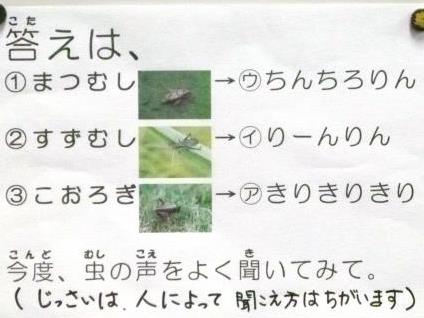 答えは、
①まつむし→㋒ちんちろりん
②すずむし→㋑りーんりん
③こおろぎ→㋐きりきりきり
今度、虫の声をよく聞いてみて。
(じっさいは、人によって聞こえ方はちがいます)